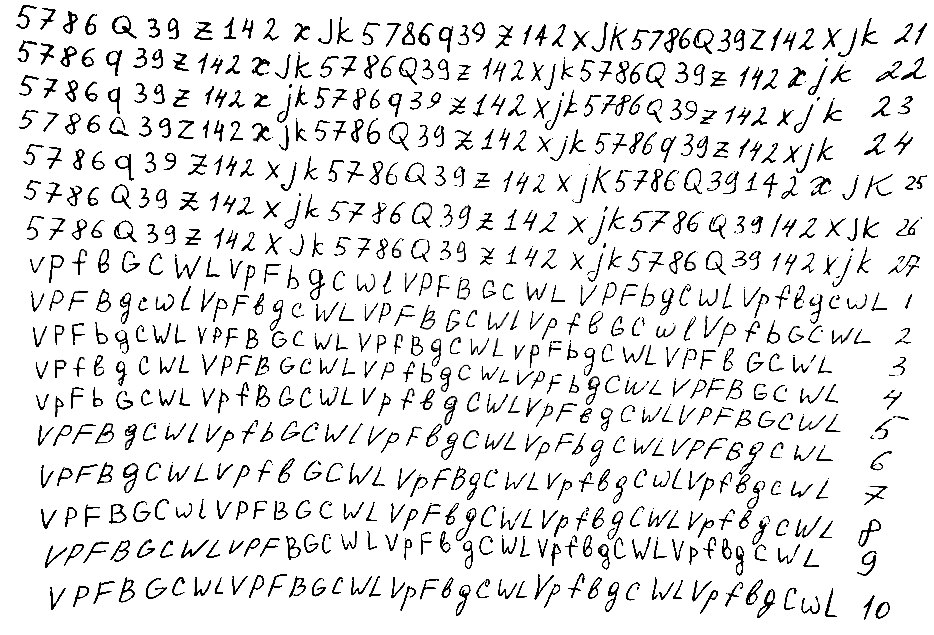 5786Q39Z142xJk5786q39Z142xJK5786Q39Z142xjk 21
5786q39Z142xJk5786Q39Z142xjk5786Q39Z142xjk 22
5786q39Z142xjk5786q39Z142xjk5786Q39Z142xjk 23
5786Q39Z142xjk5786Q39Z142xjk5786q39Z142xjk 24
5786q39Z142xjk5786Q39Z142xjK5786Q39142xJK 25
5786Q39Z142xjk5786Q39Z142xjk5786Q39142xJk 26
5786Q39Z142xJk5786Q39Z142xjk5786Q39142xjk 27
vpfBGCWLVpFbgCWlVPFBGCWLVPFbgCWLVpfBgcWL 1
VPFBgcwlVpFBgcWLVPFBGCWlVpfBGCwlVpfbGCWL 2
VPFbgCWLVPFBGCWLVPfBgCWLVpFbgCWLVPFBGCWL 3
vpfBgCWLVPFBGCWLVpfbgCWLVPFbgCWLVPFBGCWL 4
vpFbGCWLVpfBGCWLVpfBgCWLVpFBgCWLVPFBGCWL 5
VPFBgCWlVpfbGCWlVpFBgCWLVpFbgCWLVPFBgCWL 6
VPFBgCWLVpfBGCWLVpFBgCWLVpfBgCWLVpfBgCWL 7
VPFBGCWlVPFBGCWLVPFBgCWLVpfBgCWLVpfBgCWL 8
VPFBGCWLVPFBGCWLVpFBgCWLVpfBgCWLVpfBgCWL 9
VPFBGCWLVPFBGCWLVpFBgCWLVpfBgCWLVpfBgCwL 10